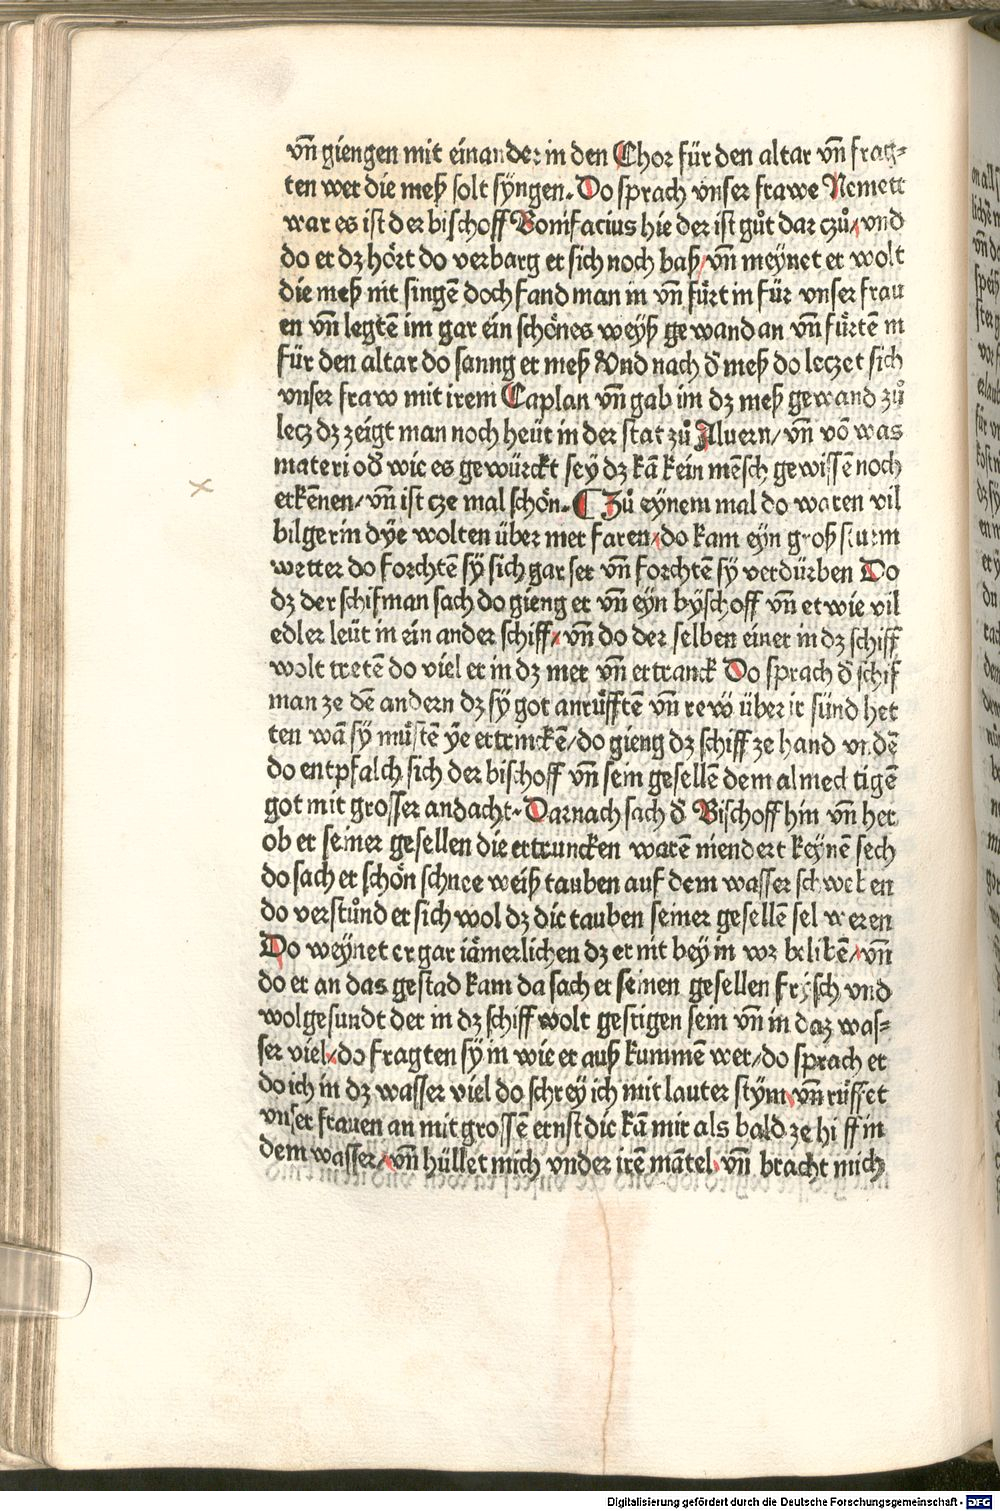 vñ giengen mit einander in den Chor für den altar vñ frag⸗
ten wer die meß solt syngen. Do sprach vnser frawe Nemett
war es ist der bischoff Bonifacius hie der ist gůt dar czů/ vnd
do er dz hört do verbarg er sich noch baß/ vñ meynet er wolt
die meß nit singē doch fand man in vñ fůrt in für vnser frau
en vñ legtē im gar ein schönes weyß gewand an vñ fůrtē in
für den altar do sanng er meß Vnd nach d̄ meß do leczet sich
vnser fraw mit irem Caplan vñ gab im dz meß gewand zů
lecz dz zeigt man noch heüt in der stat zů Aluern/ vñ vō was
materi od̄ wie es gewürckt sey dz kā kein mēsch gewissē noch
erkēnen/ vñ ist cze mal schön. ¶ Zů eynem mal do waren vil
bilgerin dye wolten über mer faren/ do kam eyn groß sturm
wetter do forchtē sy sich gar ser vñ forchtē sy verdürben Do
dz der schifman sach do gieng er vñ eyn byschoff vñ etwie vil
edler leüt in ein ander schiff/ vñ do der selben einer in dz schiff
wolt tretē do viel er in dz mer vñ ertranck Do sprach d̄ schif
man ze dē andern dz sy got anrůfftē vñ rew über ir sünd het
ten wā sy můstē ye ertrinckē/ do gieng dz schiff ze hand vndē
do entpfalch sich der bischoff vñ sein gesellē dem almechtigen
got mit grosser andacht. Darnach sach d̄ Bischoff hin vñ her
ob er seiner gesellen die ertruncken warē niendert keynē sech
do sach er schön schnee weiß tauben auf dem wasser schweben
do verstůnd er sich wol dz die tauben seiner gesellē sel weren
Do weynet er gar iämerlichen dz er nit bey in wz belibē/ vñ
do er an das gestad kam da sach er seinen gesellen frysch vnd
wolgesundt der in dz schiff wolt gestigen sein vñ in daz was⸗
ser viel/ do fragten sy in wie er auß kummē wer/ do sprach er
do ich in dz wasser viel do schrey ich mit lauter stym/ vñ růffet
vnser frauen an mit grossē ernst die kā mir als bald ze hilff in
dem wasser/ vñ hüllet mich vnder irē mātel/ vñ bracht mich
Digitalisierung gefördert durch die Deutsche Forschungsgemeinschaft - DFG